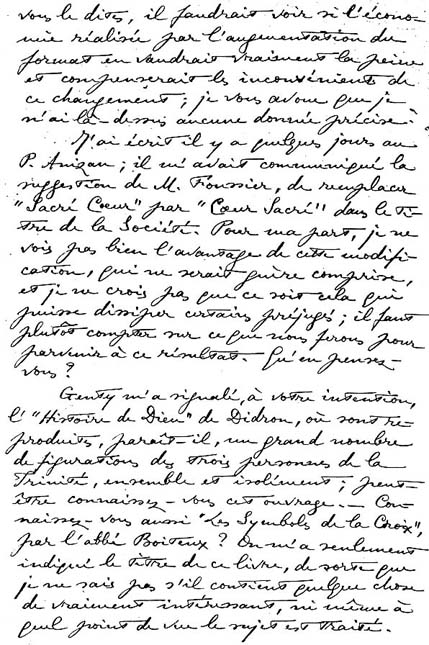 vous le dites, il faudrait voir si l'écono-
mie réalisée par l'augmentation du
format en vaudrait vraiment la peine
et compenserait les inconvénients de
ce changement ; je vous avoue que je
n'ai là-dessus aucune donnée précise.
J'ai écrit il y a quelques jours au
P. Anizan ; il m'avait communiqué la
suggestion de M. Foussier, de remplacer
"Sacré Cœur" par "Cœur Sacré" dans le ti-
tre de la Société. Pour ma part, je ne
vois pas bien l'avantage de cette modifi-
cation, qui ne serait guère comprise,
et je ne crois pas que ce soit cela qui
puisse dissiper certains préjugés ; il faut
plutôt compter sur ce que nous ferons pour
parvenir à ce résultat. Qu'en pensez-
vous ?
Genty m'a signalé, à votre intention,
l'"Histoire de Dieu" de Didron, où sont re-
produits, paraît-il, un grand nombre
de figurations des trois personnes de la
Trinité, ensemble et isolément ; peut-
être connaissez-vous cet ouvrage. — Con-
naissez-vous aussi "Les Symboles de la Croix",
par l'abbé Boiteux ? On m'a seulement
indiqué le titre de ce livre, de sorte que
je ne sais pas s'il contient quelque chose
de vraiment intéressant, ni même à
quel point de vue le sujet est traité.